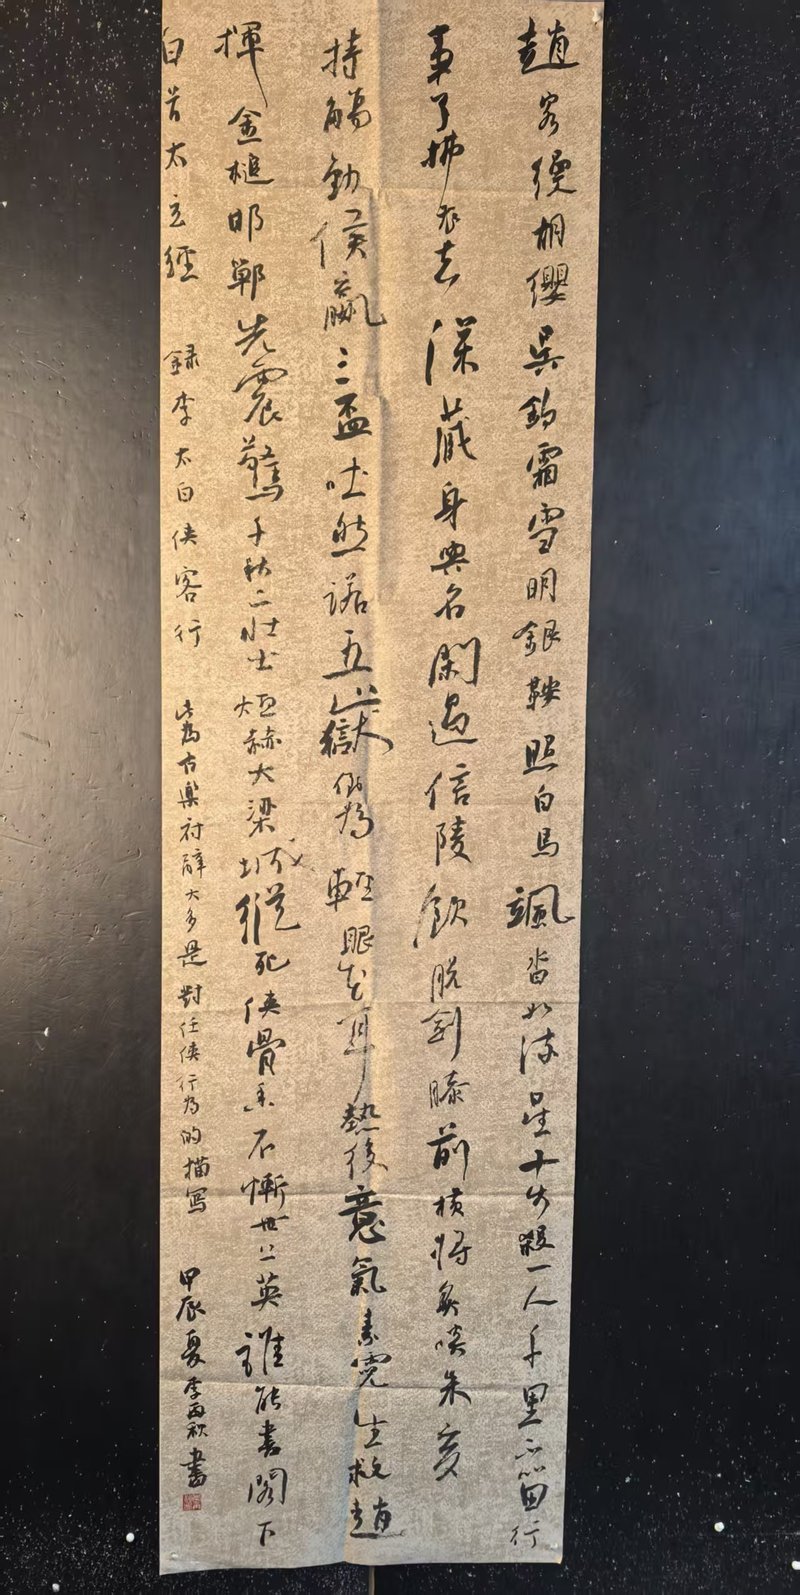 趙客縵胡纓吳鉤霜雪明銀鞍照白馬颯沓如流星十步殺一人千里不留行
事了拂衣去深藏身與名閑過信陵飲脫劍膝前橫將炙啖朱亥
持觴勸侯嬴三盃吐然諾五嶽倒為輕眼花耳熱後意氣素霓生救趙
揮金槌邯鄲先震驚千秋二壯士烜赫大梁城縱死俠骨香不慚世上英誰能書閣下
白首太玄經 錄李太白俠客行 此為古樂府辭大多是對任俠行為的描寫 甲辰夏李秋書